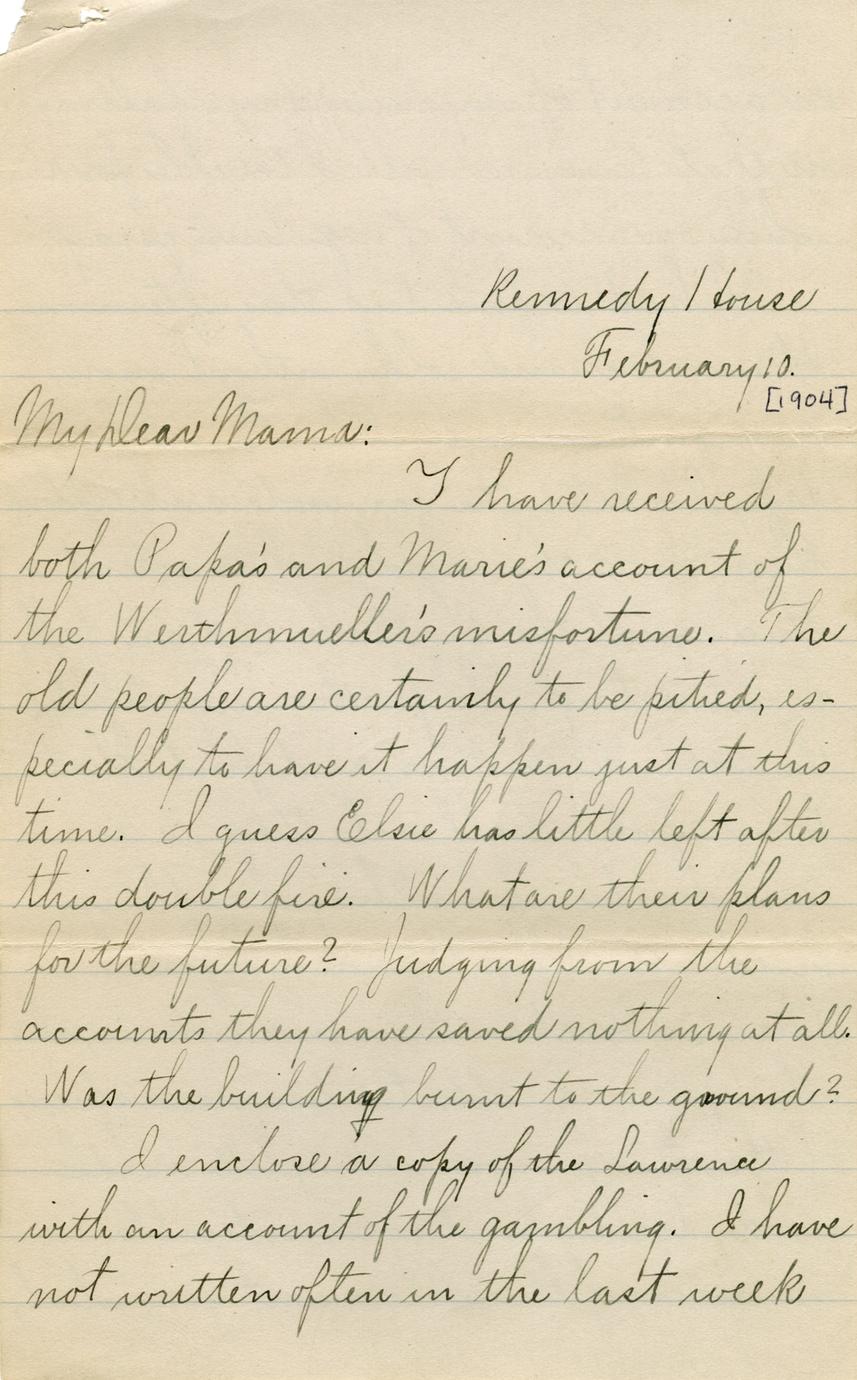 Kennedy House
February 10.
[1904]
My Dear Mama:
I have received
both Papa's and Marie's account of
the Werthmueller's misfortune. The
old people are certainly to be pitied, es-
pecially to have it happen just at this
time. I guess Elsie has little left after
this double fire. What are their plans
for the future? Judging from the
accounts they have saved nothing at all.
Was the building burnt to the ground?
I enclose a copy of the Lawrence
with an account of the gambling. I have
not written often in the last week